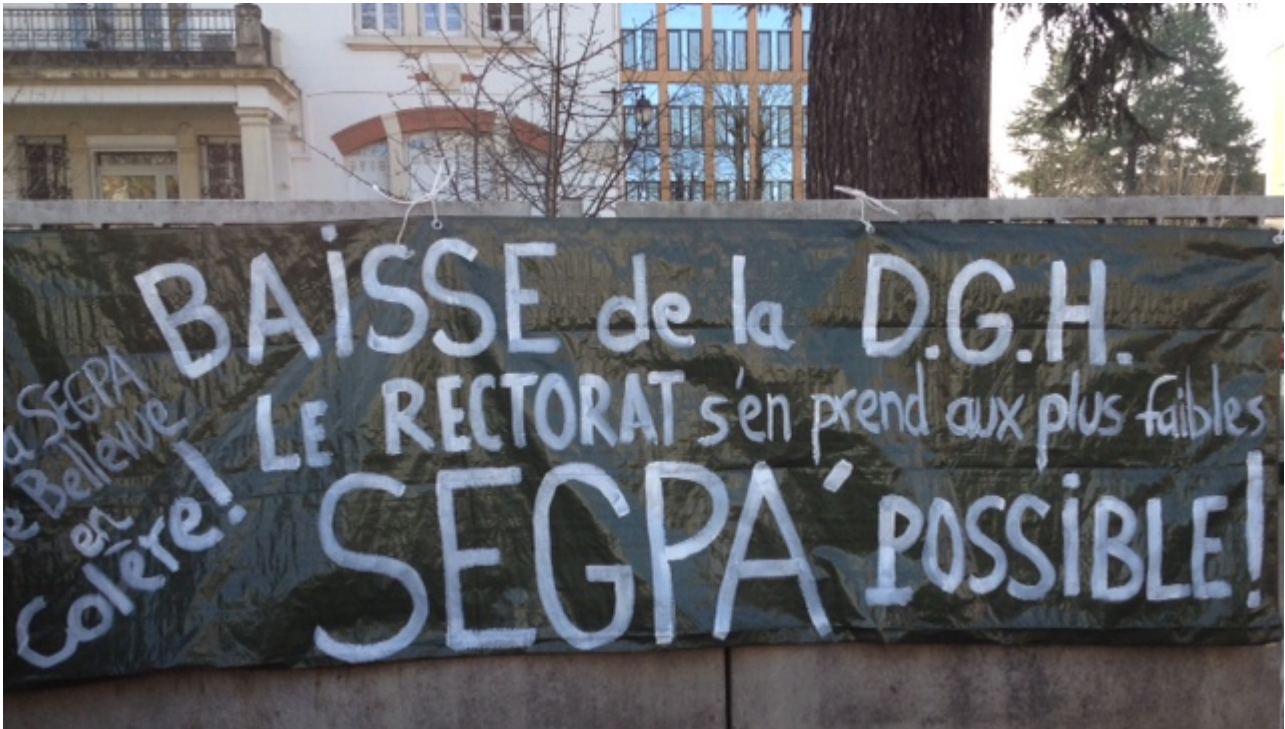 BAiSSE de la D.G.H.
LE RECTORAT s'en prend aux plus faibles
SEGPA' POSSiBLE!
a SEGPA
e Bellevue
en
Colère!